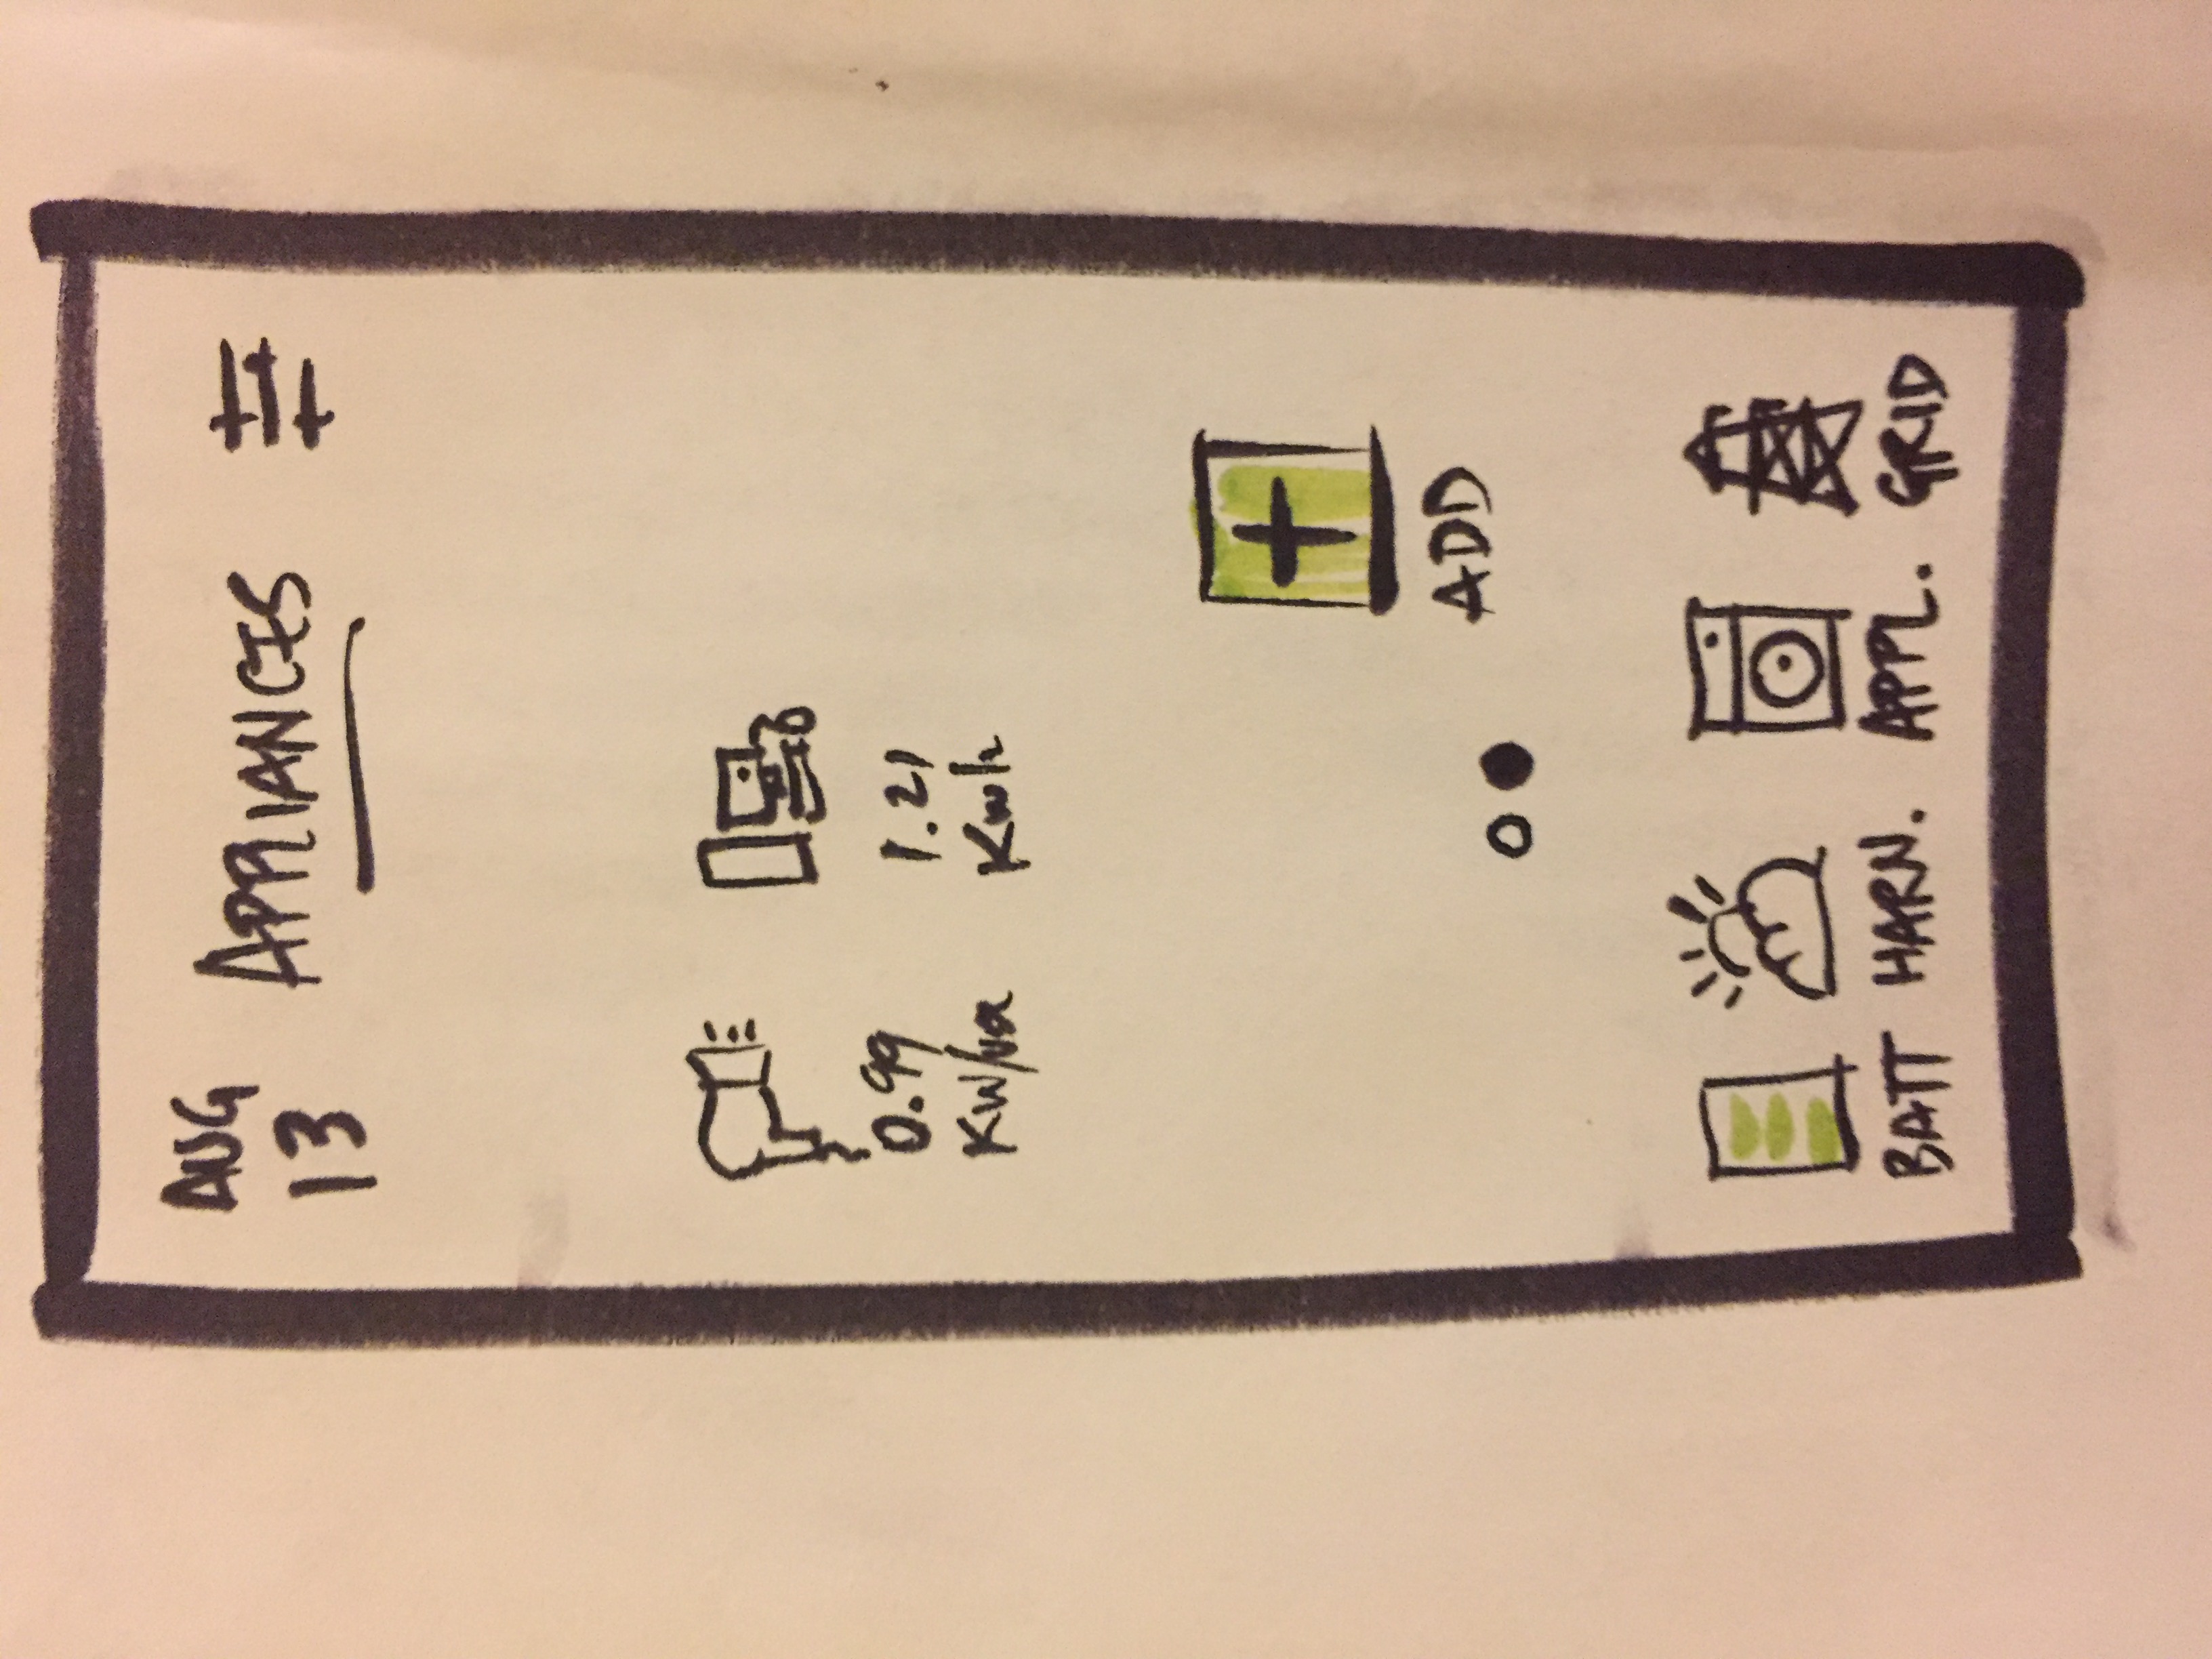 AUG
13
APPLIANCES
0.99
KW/use
1.21
Kwh
ADD
BATT
HARN.
APPL.
GRID